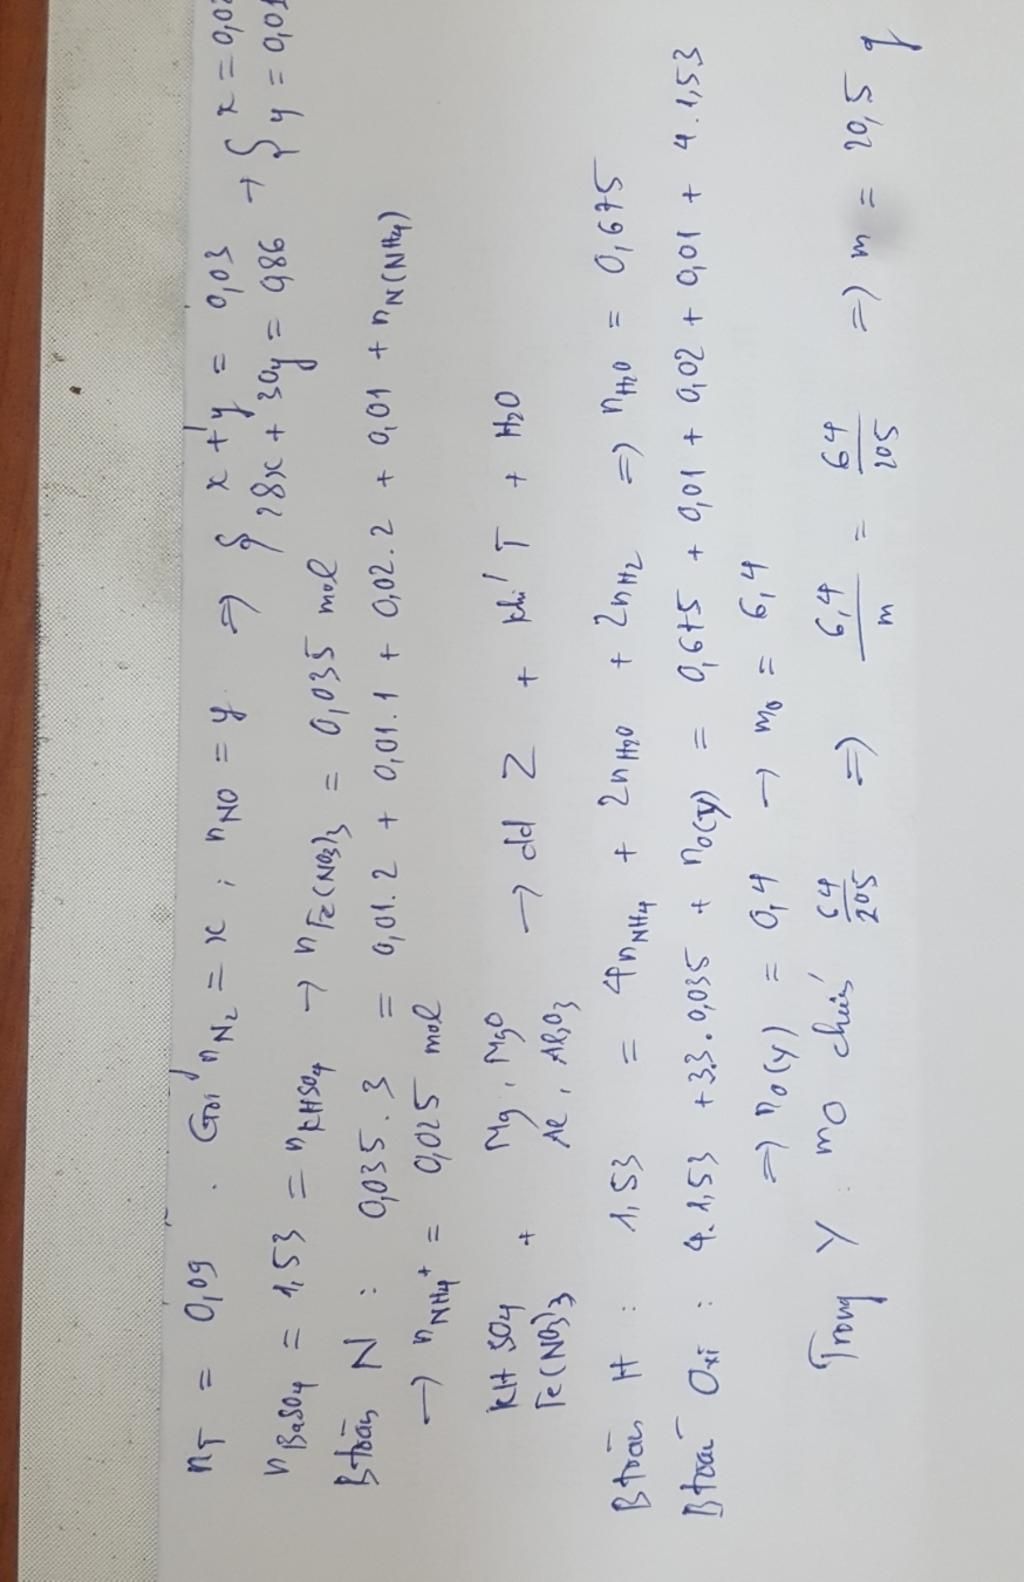 nT = 0,09 . Gọi nN2 = x ; nNO = y ⇒ { x + y = 0,03 → { x = 0,02
28x + 30y = 0,86 y = 0,01
nBaSO4 = 1,53 = nKHSO4 → nFe(NO3)3 = 0,035 mol
Btoàn N : 0,035.3 = 0,01.2 + 0,01.1 + 0,02.2 + 0,01 + nN(NH4)
→ nNH4+ = 0,025 mol
KHSO4 + Mg, MgO → dd Z + khí T + H2O
Fe(NO3)3 Al, Al2O3
Btoàn H : 1,53 = 4nNH4 + 2nH2O + 2nH2 ⇒ nH2O = 0,675
Btoàn Oxi : 4.1,53 + 3.3.0,035 + nO(Y) = 0,675 + 0,01 + 0,02 + 0,01 + 4.1,53
⇒ nO(Y) = 0,4 → mO = 6,4
Trong Y : mO chiếm 64/205 ⇒ 6,4/m = 64/205 ⇒ m = 20,5 g